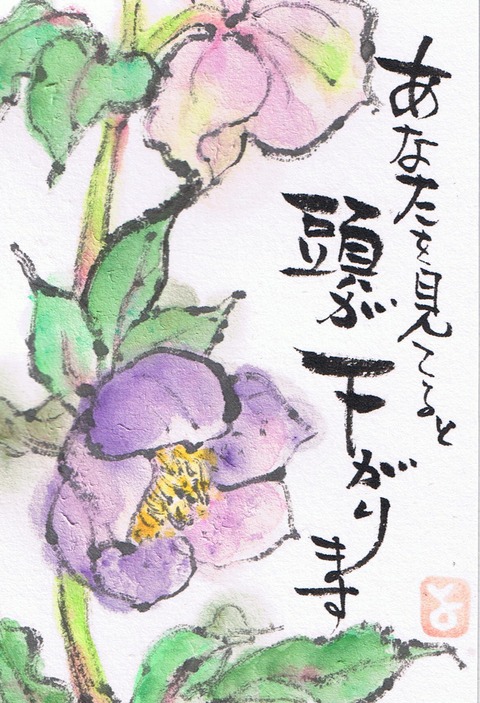 あなたを見てると
頭が
下がります